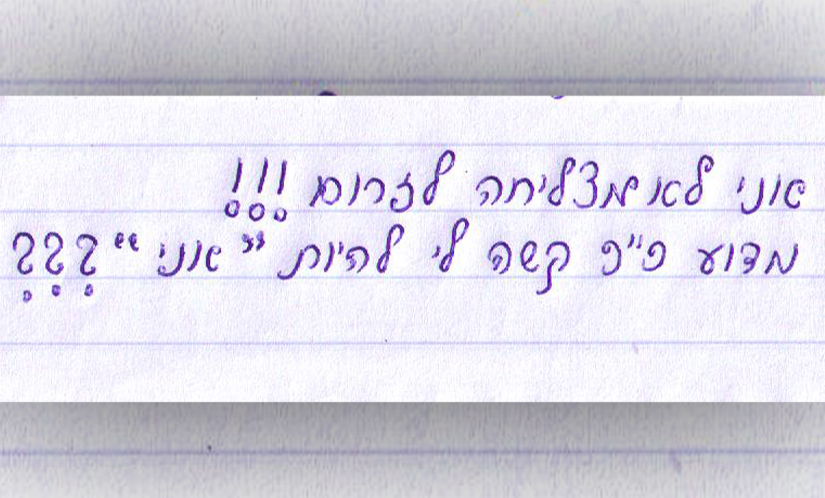 אני לא מצליחה לזרום !!!
מדוע כ"כ קשה לי להיות "אני" ???